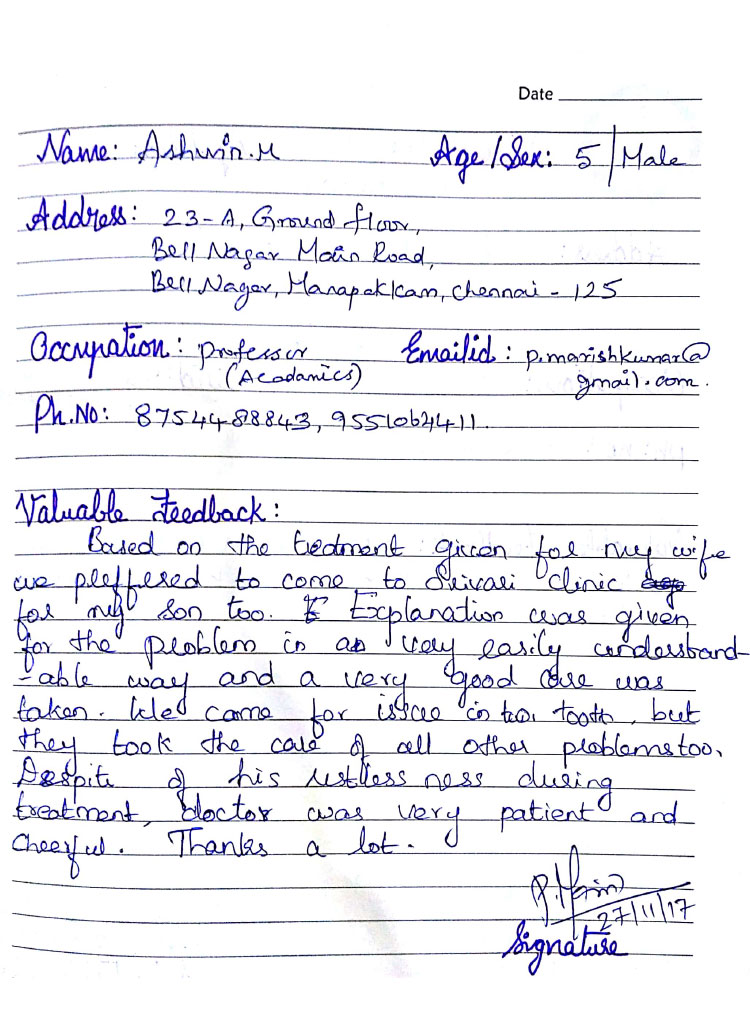 Date
Name: Ashwin.M Age/Sex: 5/Male
Address: 23-A, Ground floor,
Bell Nagar Main Road,
Bell Nagar, Manapakkam, Chennai - 125
Occupation: Professor Emailid: p.marishkumar@
(Acadamics) gmail.com.
Ph.No: 8754488843, 9551062411.
Valuable Feedback:
Based on the treatment given for my wife
we preffered to come to Srivari Clinic
for my son too. Explanation was given
for the problem in a very easily understand-
-able way and a very good care was
taken. We came for issue in two tooth, but
they took the care of all other problems too.
Despite of his restless ness during
treatment, doctor was very patient and
cheerful. Thanks a lot.
27/11/17
Signature